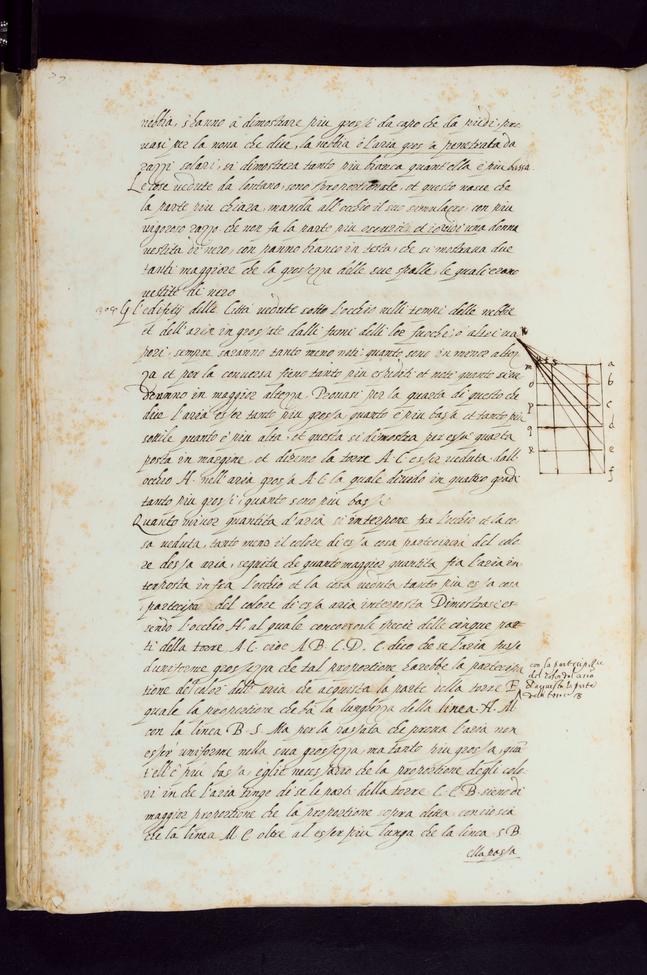 nebbia, s'hanno à dimostrare piu grossi da capo che da piedi, pro-
uasi per la nona che dice, la nebbia ò l'aria grossa penetrata da
razzi solari, si dimostrera tanto piu bianca quant'ella è piu bassa
Le cose uedute da lontano, sono sproportionate, et questo nasce che
la parte piu chiara, manda all'occhio il suo simulacro, con piu
uigoroso razzo, che non fa la parte piu oscura, et io uidi una donna
uestita di nero, con panno bianco in testa, che si mostraua due
tanti maggiore che la grossezza delle sue spalle, le quali erano
uestite di nero
Gl'edifitij delle Città uedute sotto l'occhio nelli tempi delle nebbie
et dell'aria ingrossate dalli fumi delli lor fuochi, ò altri ua
pori, sempre saranno tanto meno noti, quanto sono in menor altez
za et per la conuersa fieno tanto piu espediti et noti quanto si ue
deranno in maggior altezza. Prouasi per la quarta di questo che
dice l'aria esser tanto piu grossa quanto è piu bassa et tanto piu
sottile quanto è piu alta, et questa si dimostra per essa quarta
posta in margine, et diremo la torre A. C esser ueduta dall'
occhio H. nell'aria grossa A. C la quale diuido in quattro gradi
tanto piu grossi, quanto sono piu bassi
Quanto minor quantità d'aria si interpone fra l'occhio et la co-
sa ueduta, tanto meno il colore di essa cosa participerà del colo
re d'essa aria, seguita che quanto maggior quantita fia l'aria in-
terposta infra l'occhio et la cosa ueduta, tanto piu essa cosa
participa del colore di essa aria interposta. Dimostrasi es-
sendo l'occhio H al quale concorrono le specie delle cinque par-
ti della torre A. C. cioe A. B. C. D. C. dico che se l'aria fusse
d'uniforme grossezza che tal proportione harebbe la participa
tione del color dell'aria che acquista la parte della torre E
quale la proportione che hà la lunghezza della linea. H. M
con la linea B. S. Ma per la passata che proua l'aria non
esser uniforme nella sua grossezza, ma tanto piu grossa, quā
t'ell'è piu bassa, egli è necessario che la proportione degli colo
ri in che l'aria tinge di se le parti della torre C. C. B. sieno di
maggior proportione che la proportione sopra detta, conciosia
che la linea M. C oltre al esser piu lunga che la linea. S. B
ella passa
con la participatione
del color del aria
ch'acquista la parte
della torre B
a
b
c
d
e
f
m
o
p
q
r